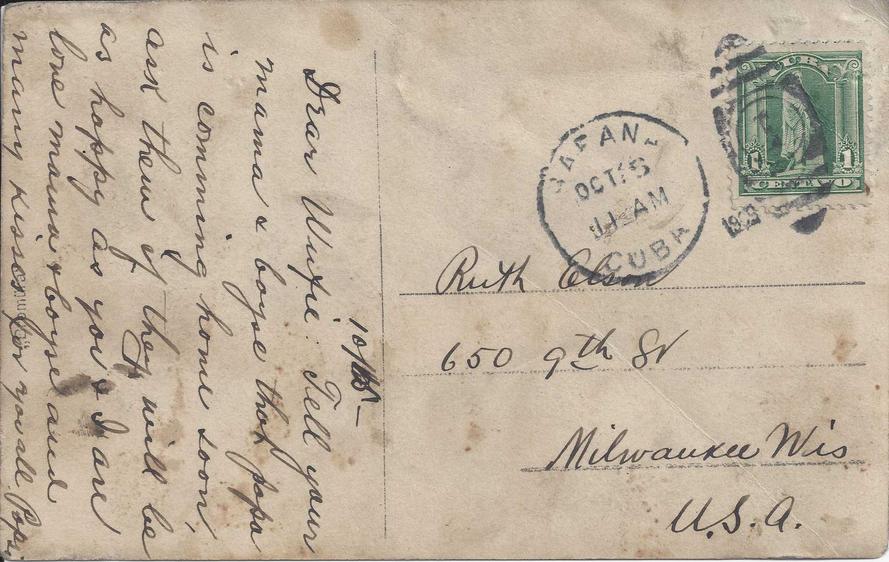 10/15 –
Dear Wifie. Tell your
mama & boyse that papa
is comming home soon,
ask them if they will be
as happy as you & I are
love mama & boyse and
many kisses for you all Papa
HAVANA
OCT 15
11 AM
CUBA
1909
1 1
CENTAVO
Ruth Olson
650 9th St
Milwaukee Wis
U.S.A.